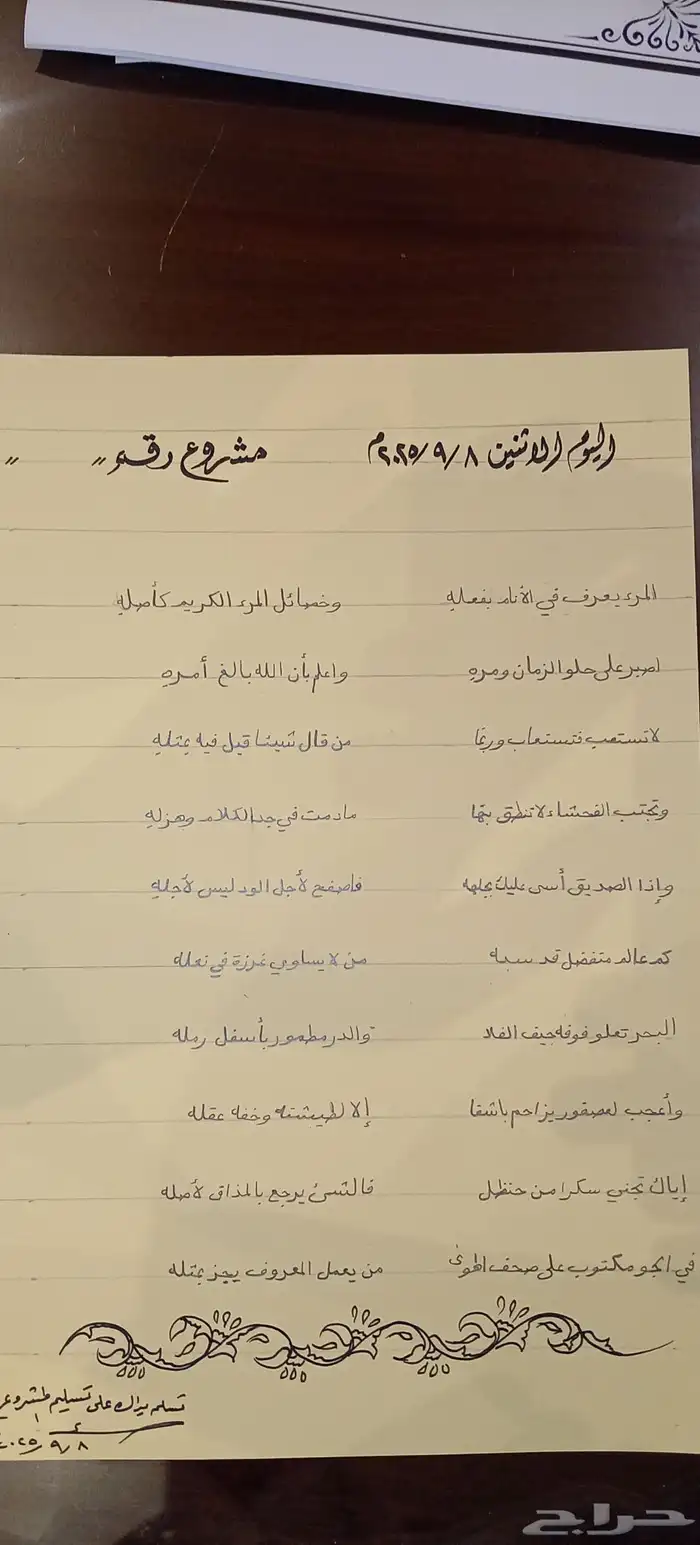 اليوم الاثنين ٢٠٢٥/٩/٨م مشروع رقم " "
المرء يعرف في الأنام بفعله وخصائل المرء الكريم كأصله
اصبر على حلو الزمان ومره واعلم بأن الله بالغ أمره
لا تستعب فتستعاب وربما من قال شيئا قيل فيه بمثله
وتجتب الفحشاء لا تنطق بها مادمت في جد الكلام وهزله
وإذا الصديق أسى عليك بجهله فاصفح لأجل الود ليس لأجله
كم عالم متفضل قد سبه من لا يساوي غرزة في نعله
البحر تعلو فوقه جيف الفلا والدر مطمور بأسفل رمله
وأعجب لعصفور يزاحم باشقا إلا لطيشته وخفة عقله
إياك تجني سكرا من حنظل فالشئ يرجع بالمذاق لأصله
في الجو مكتوب على صحف الهوى من يعمل المعروف يجز بمثله
تسلم يداك على تسليم
٢٠٢٥/٩/٨
حراج